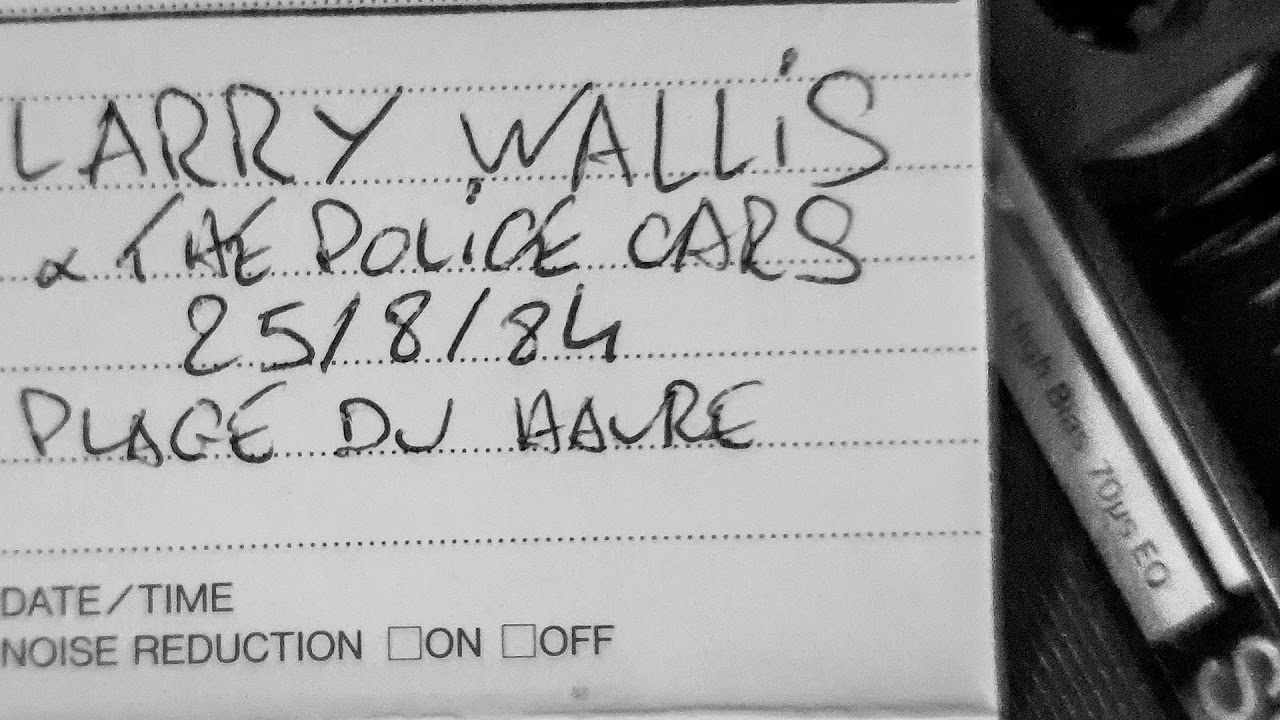 LARRY WALLiS
& THE POLiCE CARS
25/8/84
PLAGE DU HAVRE
DATE/TIME
NOISE REDUCTION □ON □OFF
High Bias 70µs EQ
S